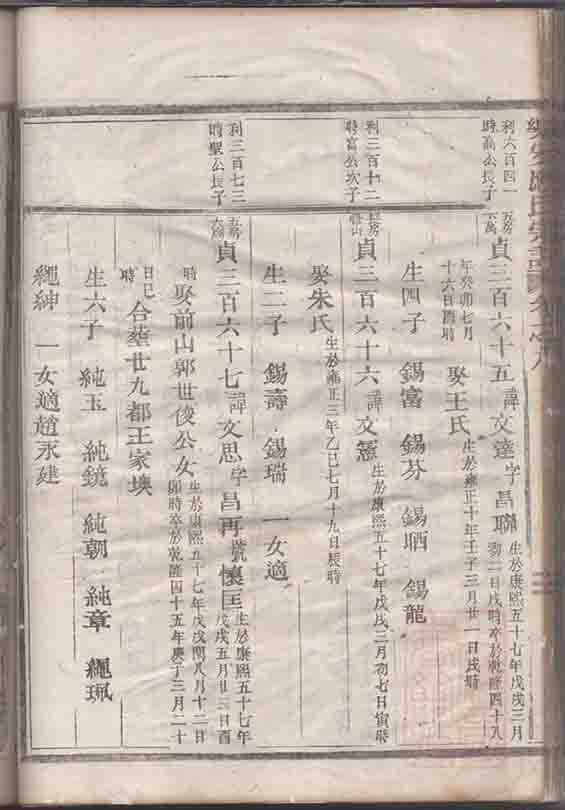 利六百四一
時高公長子
五房
貞三百六十五諱文達字昌聯
生於康熙五十七年戊戌三月
初二日戌時卒於乾隆四十八
年癸卯七月
十六日酉時
娶王氏
生於雍正十年壬子三月廿一日戌時
生四子 錫富 錫芬 錫晒 錫龍
利三百十二
時富公次子
貞三百六十六諱文憲
生於康熙五十七年戊戌三月初七日寅時
娶朱氏
生於雍正三年乙巳七月十九日辰時
生二子 錫壽 錫瑞 一女適
利三百七三
時聖公長子
五房
貞三百六十七諱文思字昌再號懷匡
生於康熙五十七年
戊戌五月廿三日酉
時
娶前山郭世俊公女
生於康熙五十七年戊戌閏八月十二日
卯時卒於乾隆四十五年庚子三月二十
日巳
時
合塟廿九都王家墺
生六子 純玉 純鏡 純朝 純章 繩珮
繩紳 一女適趙永建